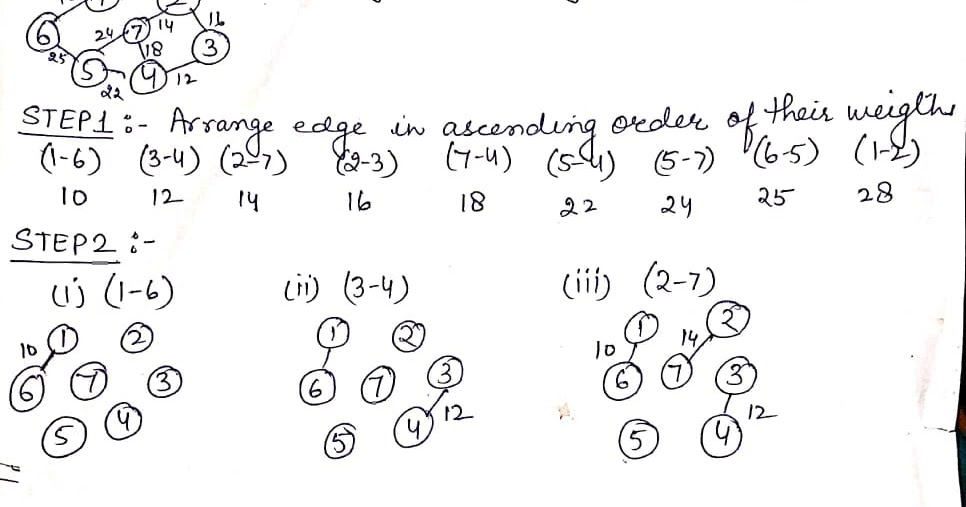 1 2
6 24 7 14 16
25 18 3
5 22 4 12
STEP1 :- Arrange edge in ascending order of their weigths
(1-6) (3-4) (2-7) (2-3) (7-4) (5-4) (5-7) (6-5) (1-2)
10 12 14 16 18 22 24 25 28
STEP2 :-
(i) (1-6) (ii) (3-4) (iii) (2-7)
10 1 2 1 2 10 1 14 2
6 7 3 6 7 3 6 7 3
5 4 5 4 12 5 4 12